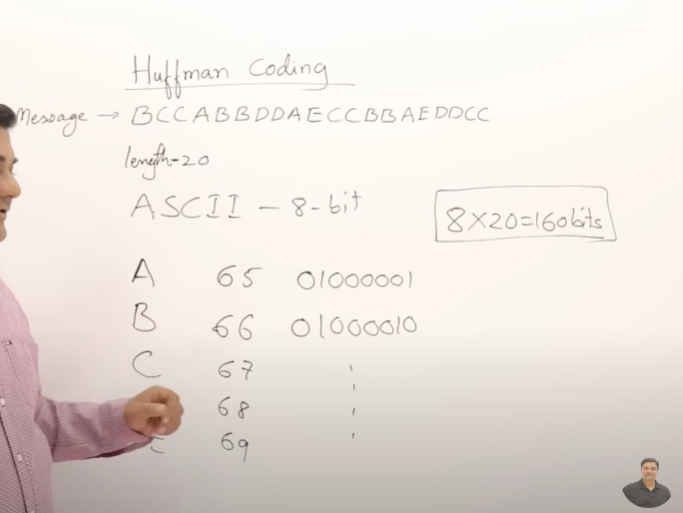 Huffman Coding
Message → BCCABBDDAECCBBAEDDCC
length-20
ASCII - 8-bit
8×20=160bits
A 65 01000001
B 66 01000010
C 67
68
69